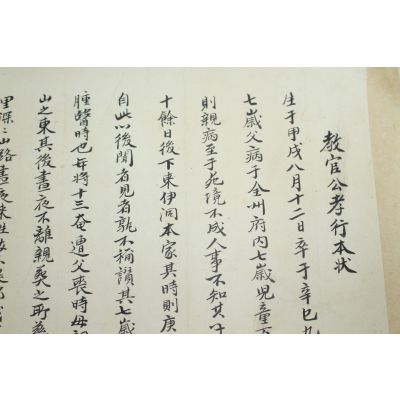 教官公孝行本状
生于甲戌八月十二日卒于辛巳九
七歲父病于全州府内七歲児童
則親病至于死境不成人事不知其
十餘日後下東伊洞本家其時則庚
自此以後聞者見者孰不稱讚其七歲
腫醫時也年將十三奄遭父喪時母
山之東其後晝夜不離親葬之所
里深山路晝夜